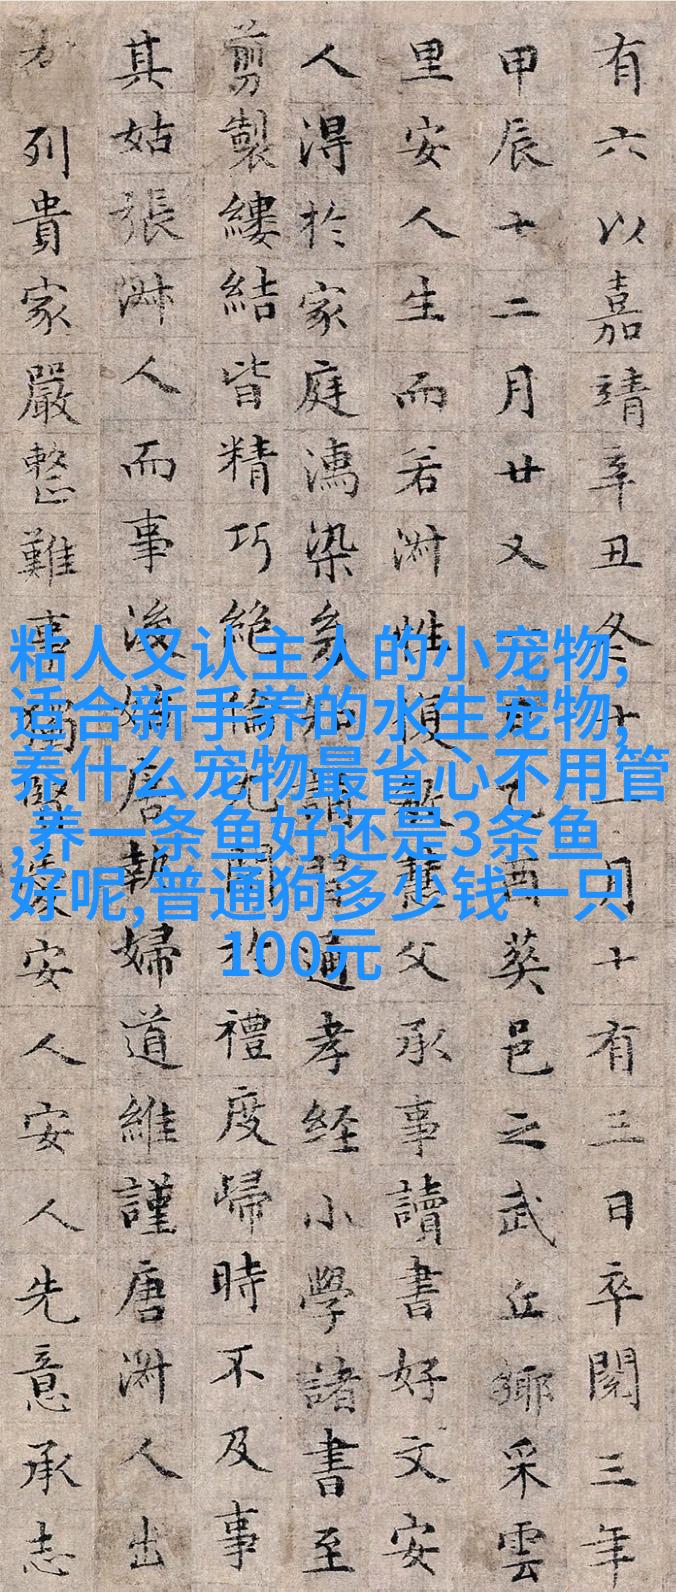 有六以嘉靖辛丑冬十一月十有三日卒閱三年
甲辰十二月廿又一日乙酉葬邑之武丘鄉采雲
里安人生而若淑性復敏慧父承事讀書好文安
人得於家庭染誦習通孝經小學諸書至
剪製縷結皆精巧絕倫尤閑於禮度歸時不及事
其姑張淑人而事後姑唐執婦道維謹唐淑人出
列貴家嚴整難事獨賢愛安人安人先意承志
粘人又认主人的小宠物,
适合新手养的水生宠物,
养什么宠物最省心不用管
,养一条鱼好还是3条鱼
好呢,普通狗多少钱一只
100元